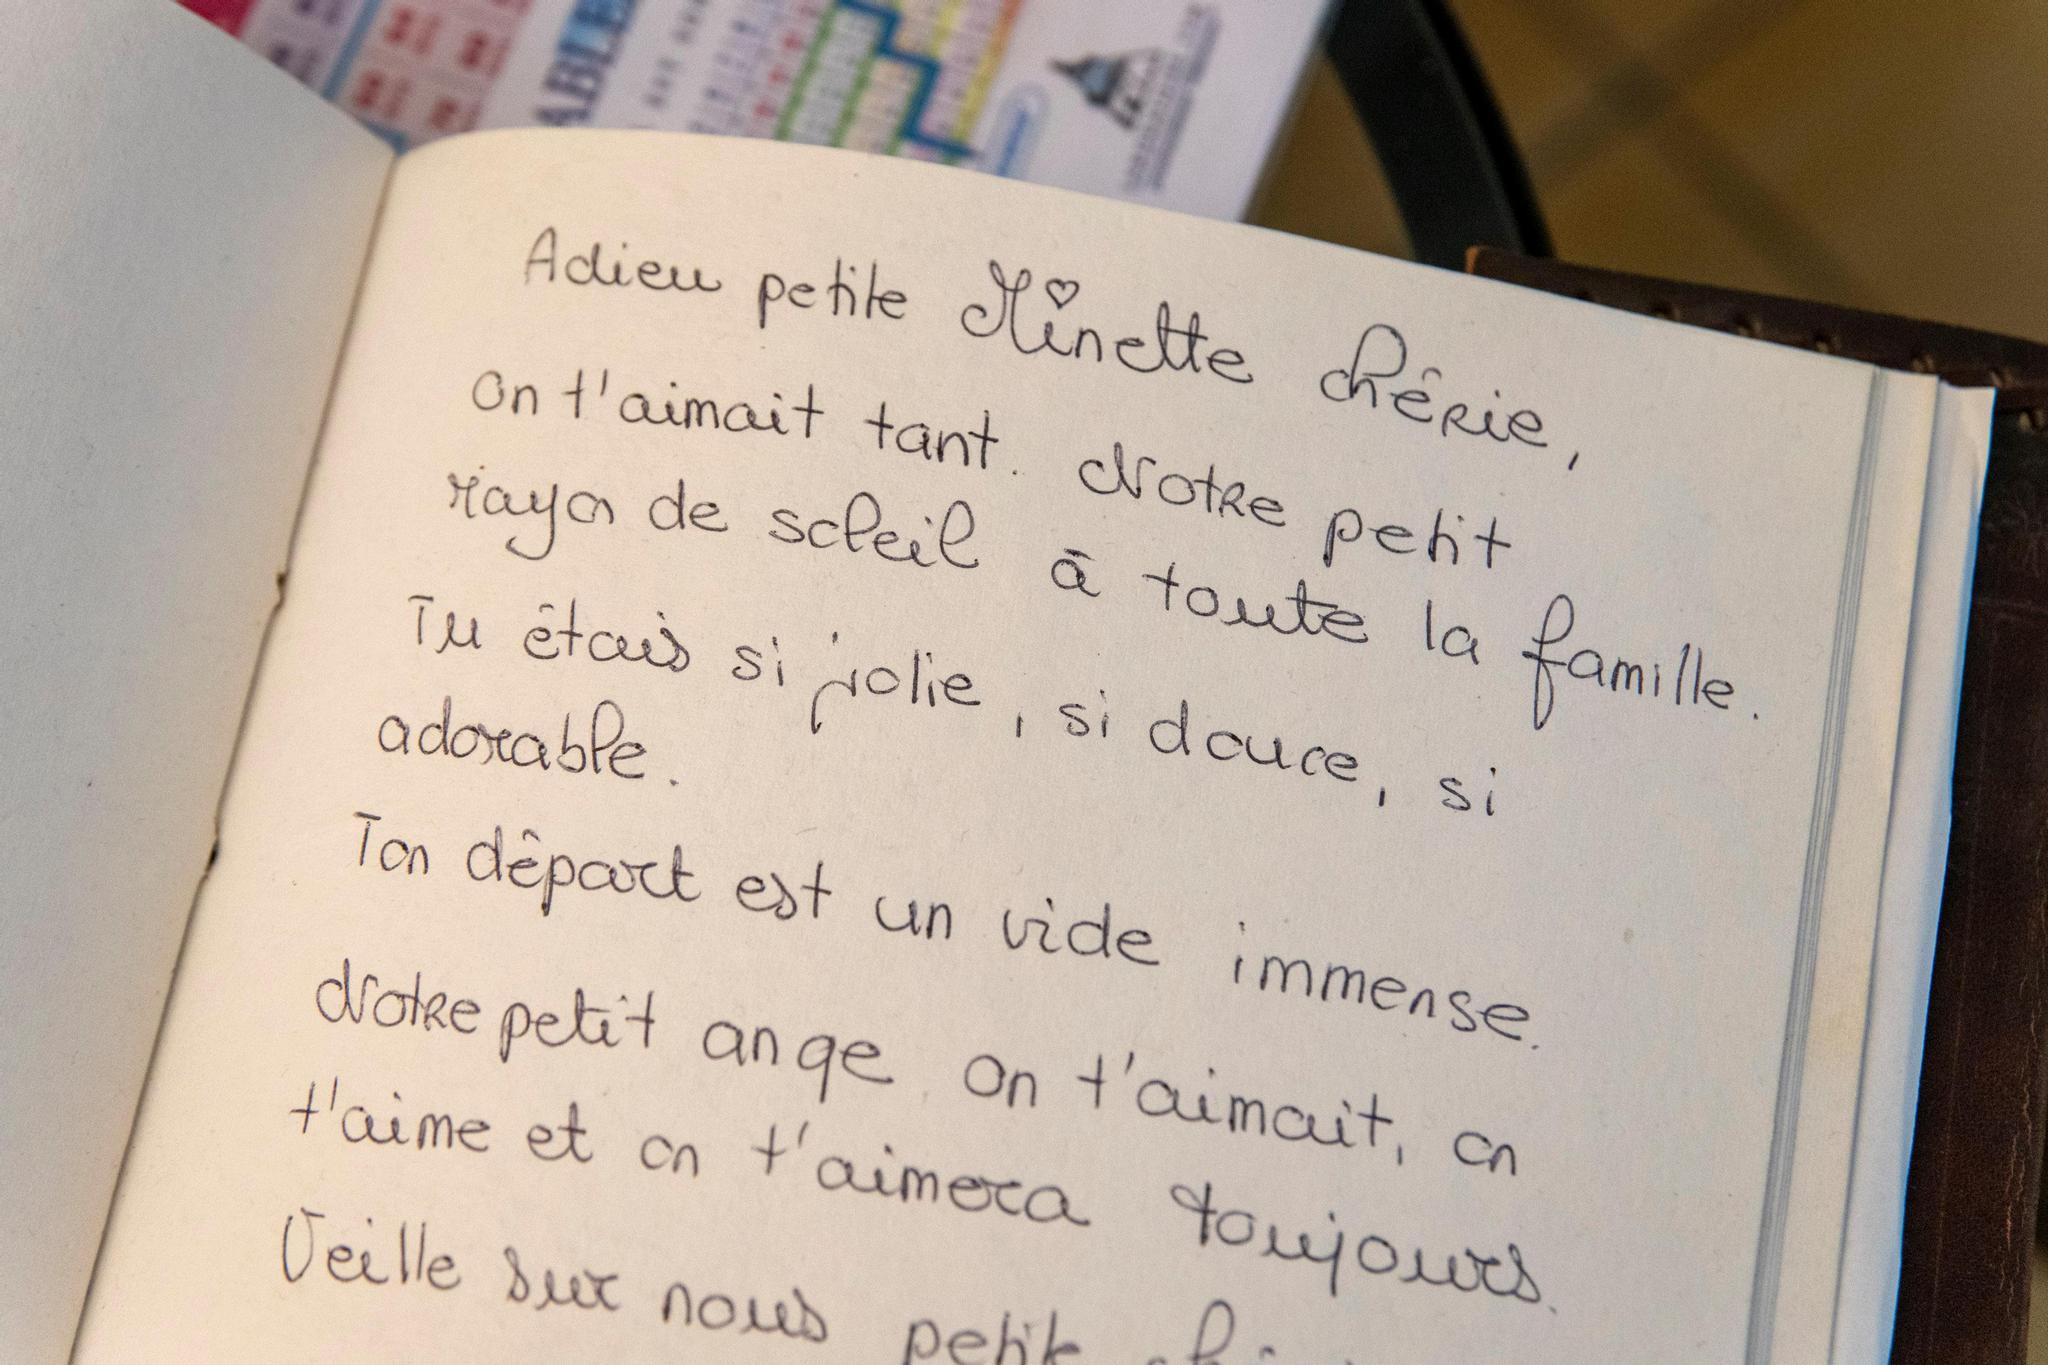 ABLE
Adieu petite Minette chérie,
on t'aimait tant. Notre petit
rayon de soleil à toute la famille.
Tu étais si jolie, si douce, si
adorable.
Ton départ est un vide immense.
Notre petit ange on t'aimait, on
t'aime et on t'aimera toujours.
Veille sur nous petite